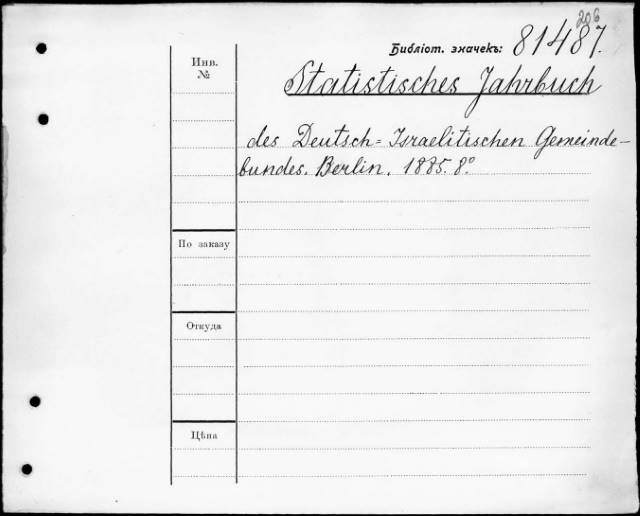 206
Библіот. значекъ: 81487.
Инв.
№
Statistisches Jahrbuch
des Deutsch=Israelitischen Gemeinde-
bundes. Berlin. 1885. 8°
По заказу
Откуда
Цѣна